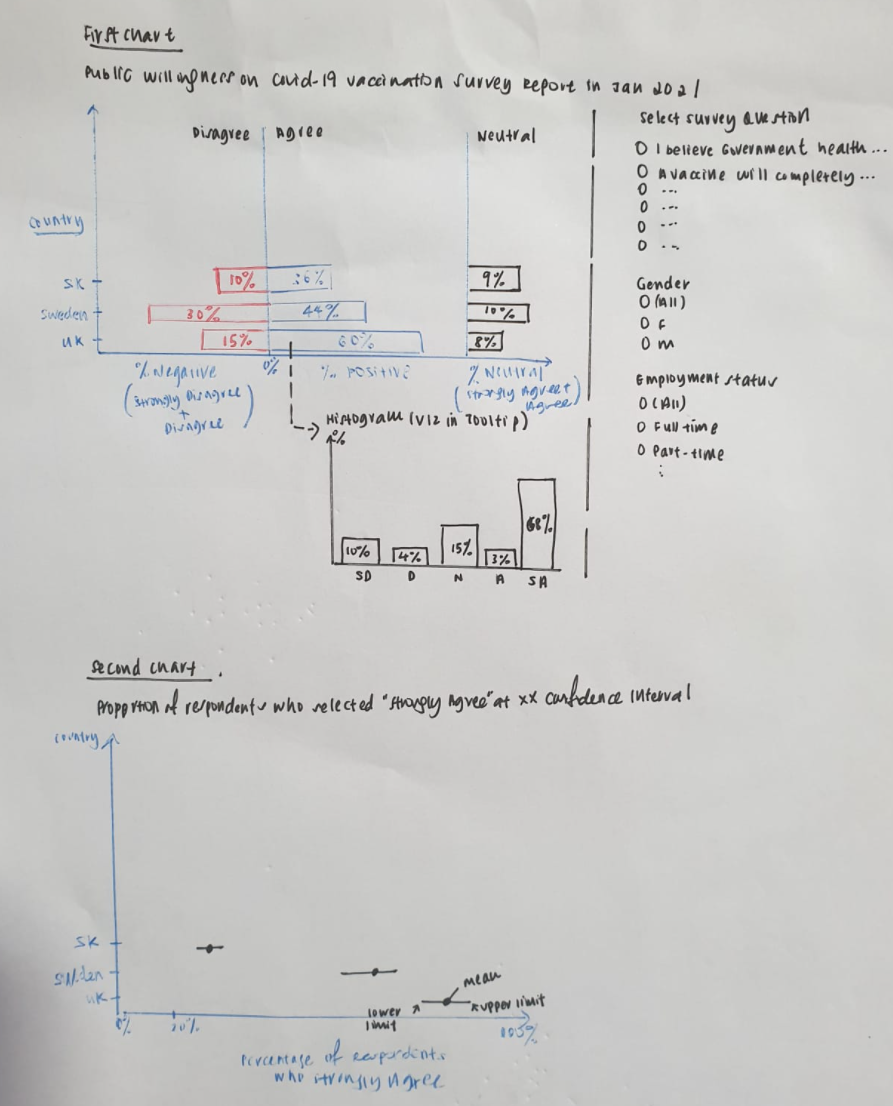 First chart
Public willingness on covid-19 vaccination survey report in Jan 2021
Disagree Agree Neutral
Country
SK 10% 36% 9%
Sweden 30% 44% 10%
UK 15% 60% 8%
% Negative 0% % Positive % Neutral
(Strongly Disagree + Disagree) (Strongly Agree + Agree)
Histogram (Viz in Tooltip)
%
10% 4% 15% 3% 68%
SD D N A SA
Select survey Question
O I believe Government health...
O A vaccine will completely...
O ...
O ...
O ...
O ...
Gender
O (All)
O F
O M
Employment status
O (All)
O Full time
O Part-time
Second chart.
Proportion of respondents who selected "strongly Agree" at xx confidence interval
Country
SK
Sweden
UK
mean
lower limit
upper limit
0%
Percentage of respondents
who strongly Agree